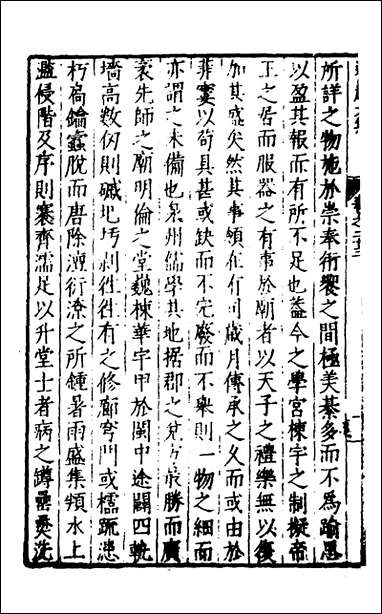 所詳之物施於崇奉衎饗之間極美綦多而不為踰思
以盈其報而有所不足也蓋今之學宮棟宇之制擬帝
王之居而服器之有事於廟者以天子之禮樂無以復
加其盛矣然其事領在有司歲月傳承之久而或由於
菲窶以苟具甚或缺而不完廢而不舉則一物之細而
亦謂之未備也泉州儒學其地据郡之兌方最勝而廣
袤先師之廟明倫之堂魏棟華宇甲於閩中途闢四軌
墻高數仞則磩地圬剝徃徃有之修廊穹門或橋䟽漶
朽扃鑰蠧脫而唐除澶衍潦之所鍾暑雨盛集頖水上
濫侵階及序則褰齊濡足以升堂士者病之罇罍爵洗